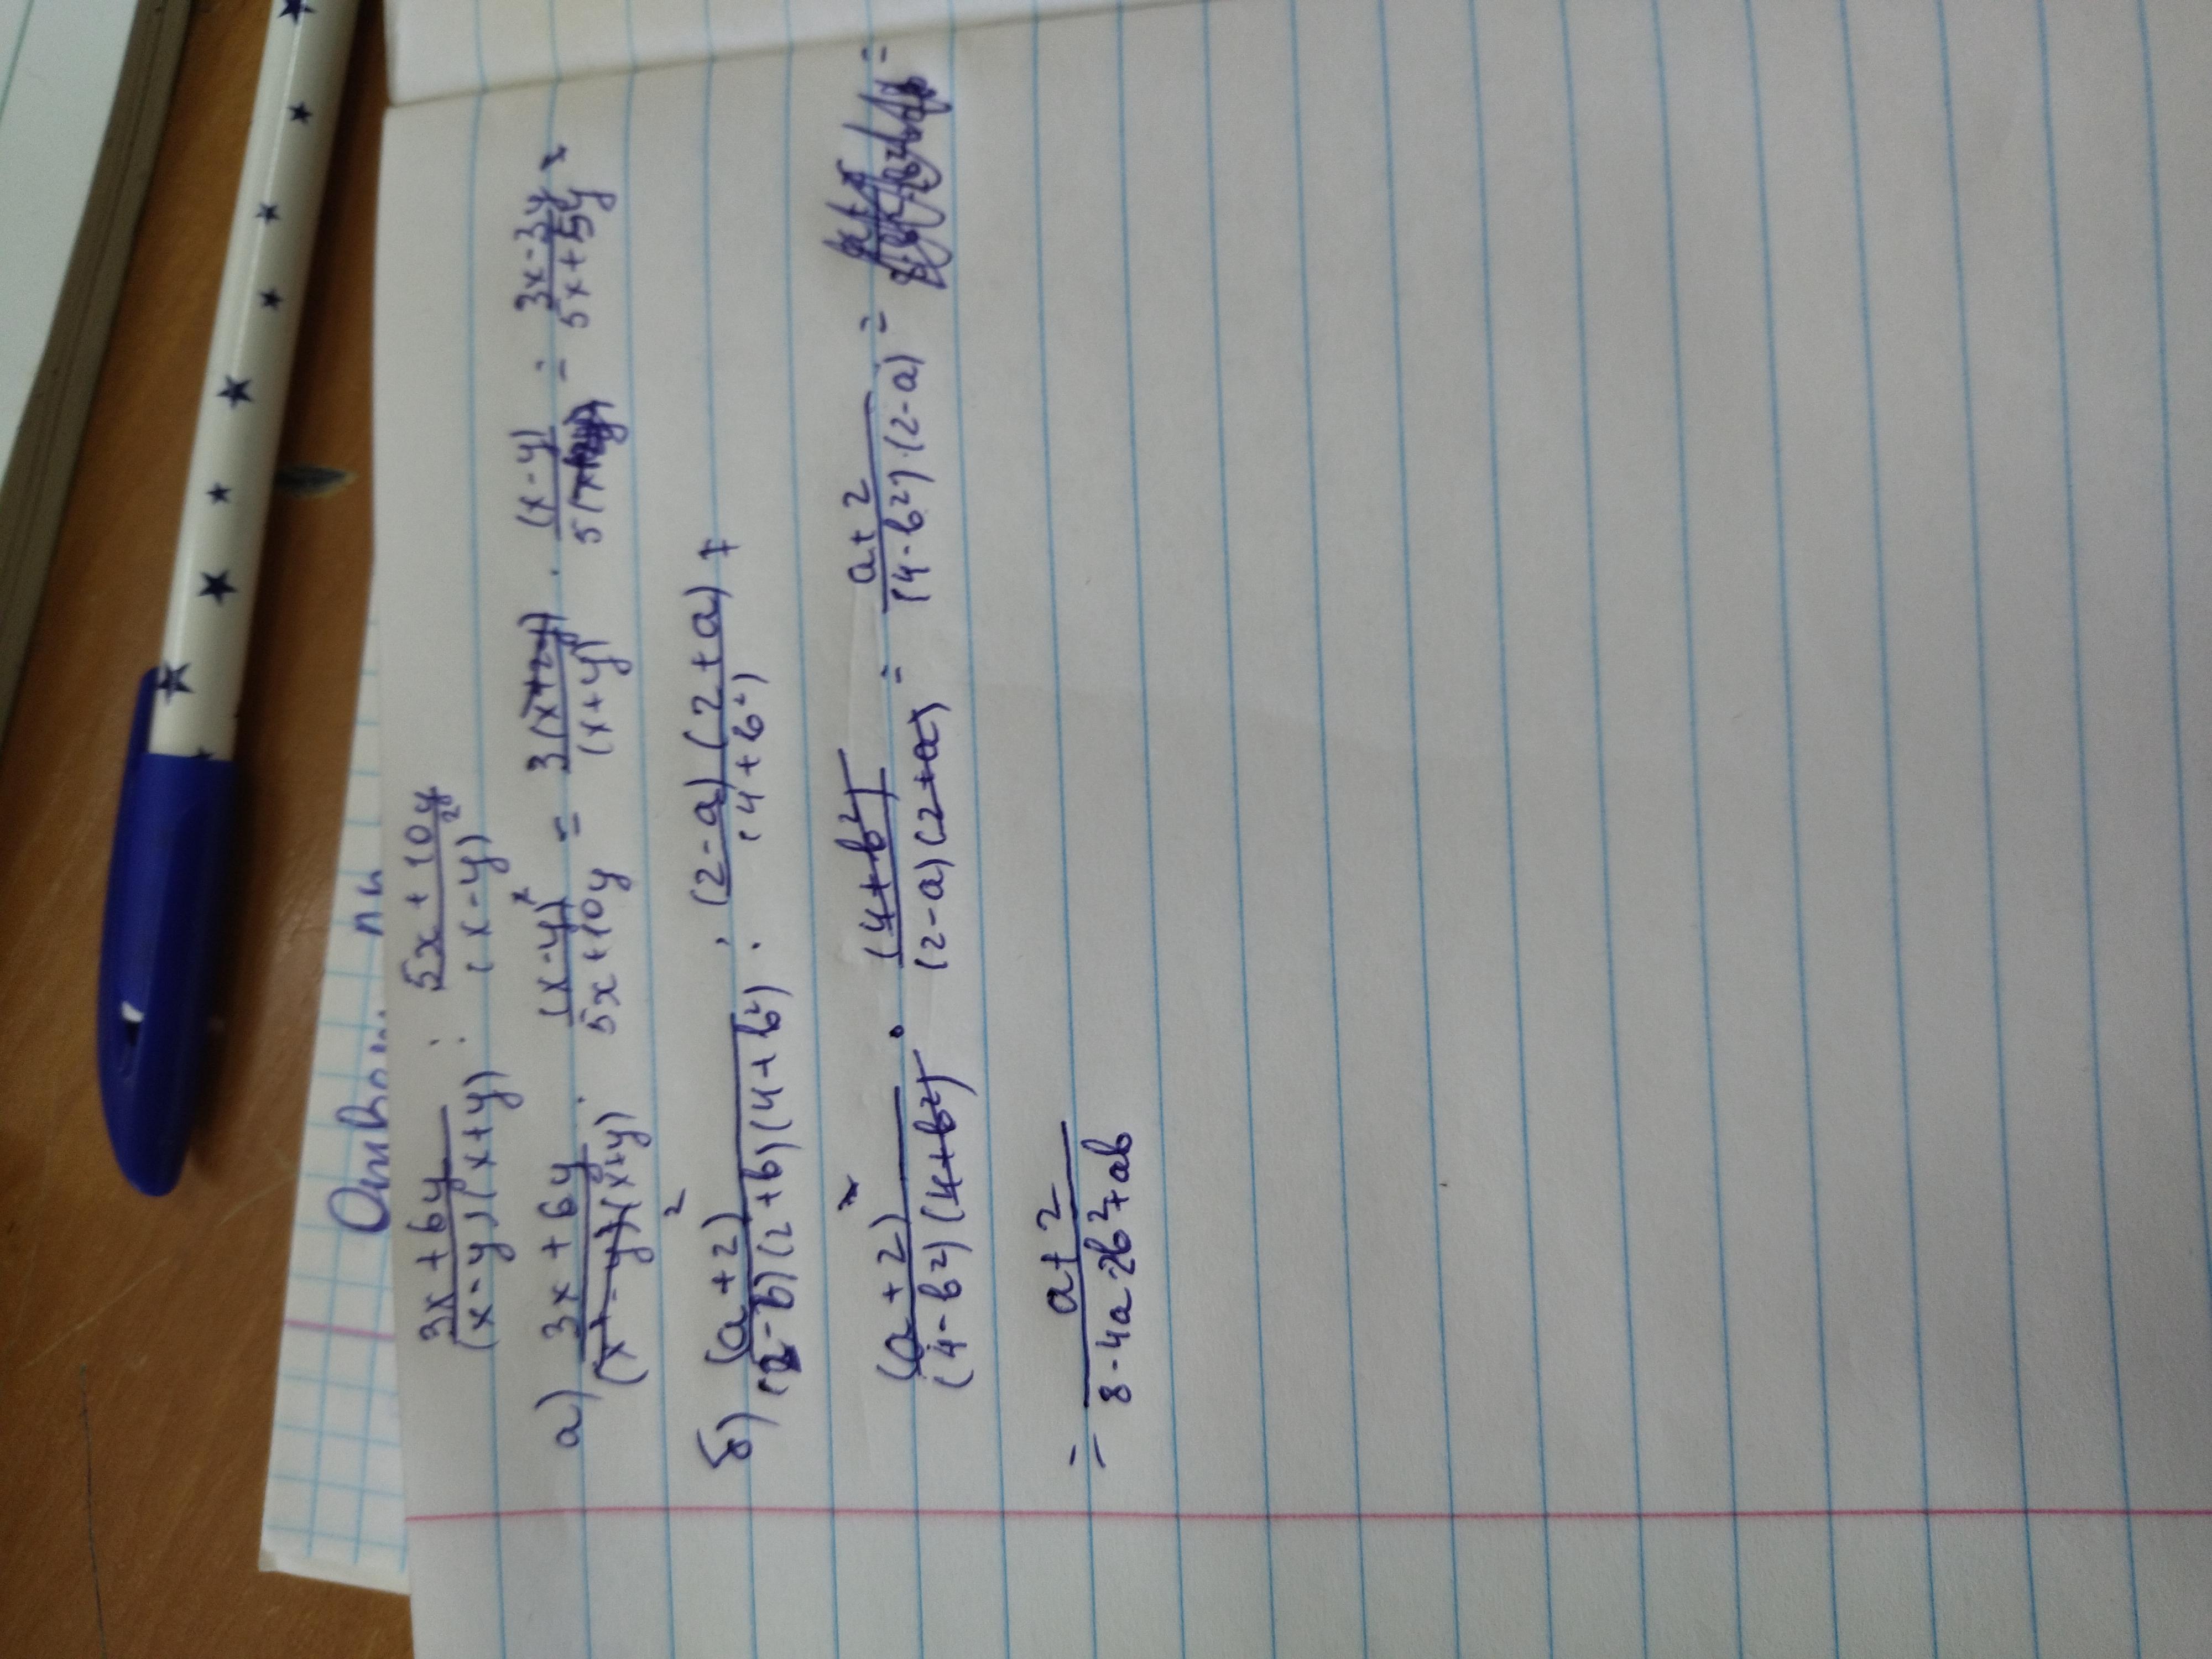 3x + 6y / (x - y)(x + y) : 5x + 10y / (x - y)²
а) 3x + 6y / (x - y)(x + y) · (x - y)² / 5x + 10y = 3(x + 2y) / (x + y) · (x - y) / 5 = 3x - 3y / 5x + 5y
б) (a + 2)² / (2 - b)(2 + b)(4 + b²) : (2 - a)(2 + a) / (4 + b²) =
(a + 2)² / (4 - b²)(4 + b²) · (4 + b²) / (2 - a)(2 + a) = a + 2 / (4 - b²)(2 - a) =
= a + 2 / 8 - 4a 2b² + ab